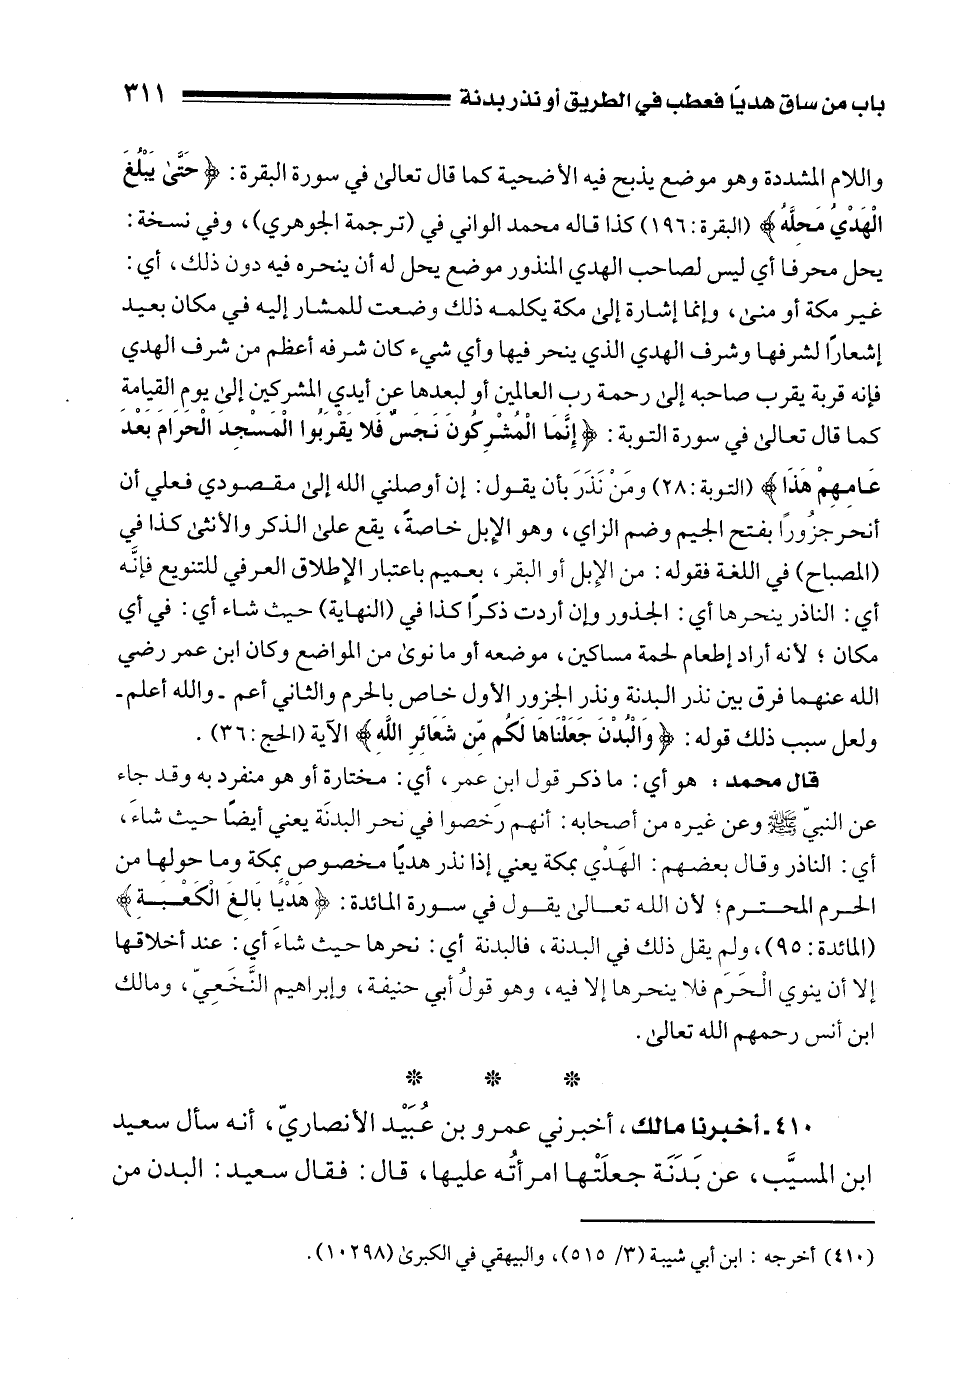 باب من ساق هديًا فعطب في الطريق أو نذر بدنة ٣١١
واللام المشددة وهو موضع يذبح فيه الأضحية كما قال تعالى في سورة البقرة: ﴿حَتَّىٰ يَبْلُغَ
الْهَدْيُ مَحِلَّهُ﴾ (البقرة: ١٩٦) كذا قاله محمد الواني في (ترجمة الجوهري)، وفي نسخة:
يحل محرفا أي ليس لصاحب الهدي المنذور موضع يحل له أن ينحره فيه دون ذلك، أي:
غير مكة أو منى، وإنما إشارة إلى مكة يكلمه ذلك وضعت للمشار إليه في مكان بعيد
إشعارًا لشرفها وشرف الهدي الذي ينحر فيها وأي شيء كان شرفه أعظم من شرف الهدي
فإنه قربة يقرب صاحبه إلى رحمة رب العالمين أو لبعدها عن أيدي المشركين إلى يوم القيامة
كما قال تعالى في سورة التوبة: ﴿إِنَّمَا الْمُشْرِكُونَ نَجَسٌ فَلَا يَقْرَبُوا الْمَسْجِدَ الْحَرَامَ بَعْدَ
عَامِهِمْ هَذَا﴾ (التوبة: ٢٨) ومَنْ نَذَرَ بأن يقول: إن أوصلني الله إلى مقصودي فعلي أن
أنحر جزُورًا بفتح الجيم وضم الزاي، وهو الإبل خاصةً، يقع على الذكر والأنثى كذا في
(المصباح) في اللغة فقوله: من الإبل أو البقر، بعميم باعتبار الإطلاق العرفي للتنويع فإنَّه
أي: الناذر ينحرها أي: الجذور وإن أردت ذكرًا كذا في (النهاية) حيث شاء أي: في أي
مكان؛ لأنه أراد إطعام لحمة مساكين، موضعه أو ما نوى من المواضع وكان ابن عمر رضي
الله عنهما فرق بين نذر البدنة ونذر الجزور الأول خاص بالحرم والثاني أعم ـ والله أعلم ـ
ولعل سبب ذلك قوله: ﴿وَالْبُدْنَ جَعَلْنَاهَا لَكُم مِّن شَعَائِرِ اللَّهِ﴾ الآية (الحج: ٣٦).
قال محمد: هو أي: ما ذكر قول ابن عمر، أي: مختارة أو هو منفرد به وقد جاء
عن النبيّ ﷺ وعن غيره من أصحابه: أنهم رَخصوا في نحر البدنَة يعني أيضًا حيث شاءَ،
أي: الناذر وقال بعضهم: الهَدْي بمكة يعني إذا نذر هديًا مخصوص بمكة وما حولها من
الحرم المحترم؛ لأن الله تعالى يقول في سورة المائدة: ﴿هَدْيًا بَالِغَ الْكَعْبَةِ﴾
(المائدة: ٩٥)، ولم يقل ذلك في البدنة، فالبدنة أي: نحرها حيث شاءَ أي: عند أخلاقها
إلا أن ينوي الْحَرَم فلا ينحرها إلا فيه، وهو قولُ أبي حنيفة، وإبراهيم النَّخَعيّ، ومالك
ابن أنس رحمهم الله تعالى.
* * *
٤١٠ ـ أخبرنا مالك، أخبرني عمرو بن عُبَيْد الأنصاريّ، أنه سأل سعيد
ابن المسيَّب، عن بَدَنَة جعلَتْها امرأتُه عليها، قال: فقال سعيد: البدن من
(٤١٠) أخرجه: ابن أبي شيبة (٣/ ٥١٥)، والبيهقي في الكبرى (١٠٢٩٨).